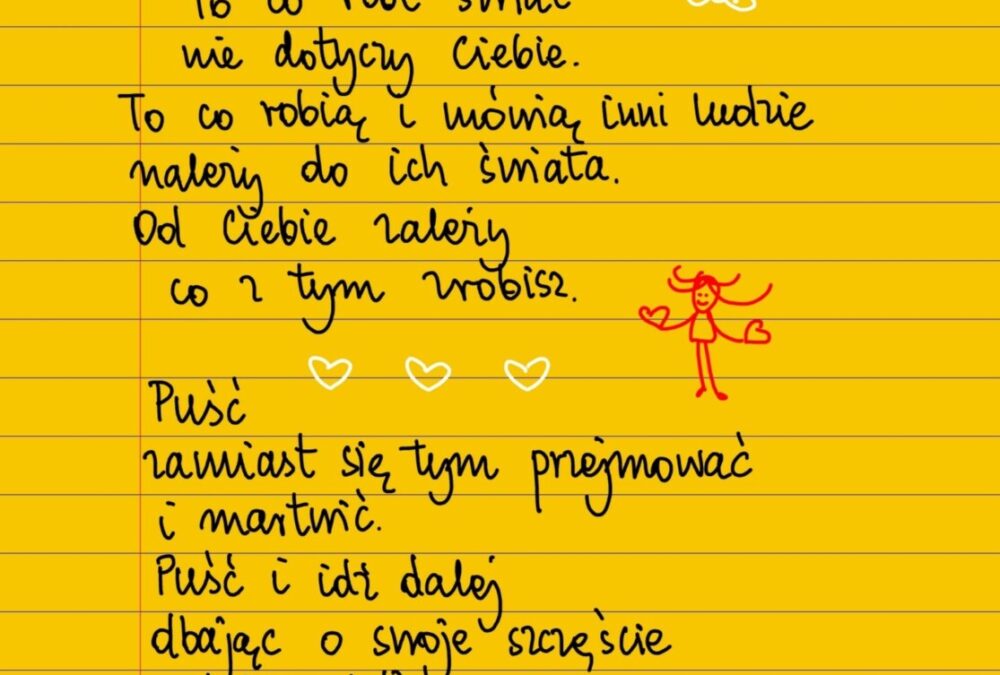 To co robi świat
nie dotyczy Ciebie.
To co robią i mówią inni ludzie
należy do ich świata.
Od Ciebie zależy
co z tym zrobisz.
Puść
zamiast się tym przejmować
i martwić.
Puść i idź dalej
dbając o swoje szczęście